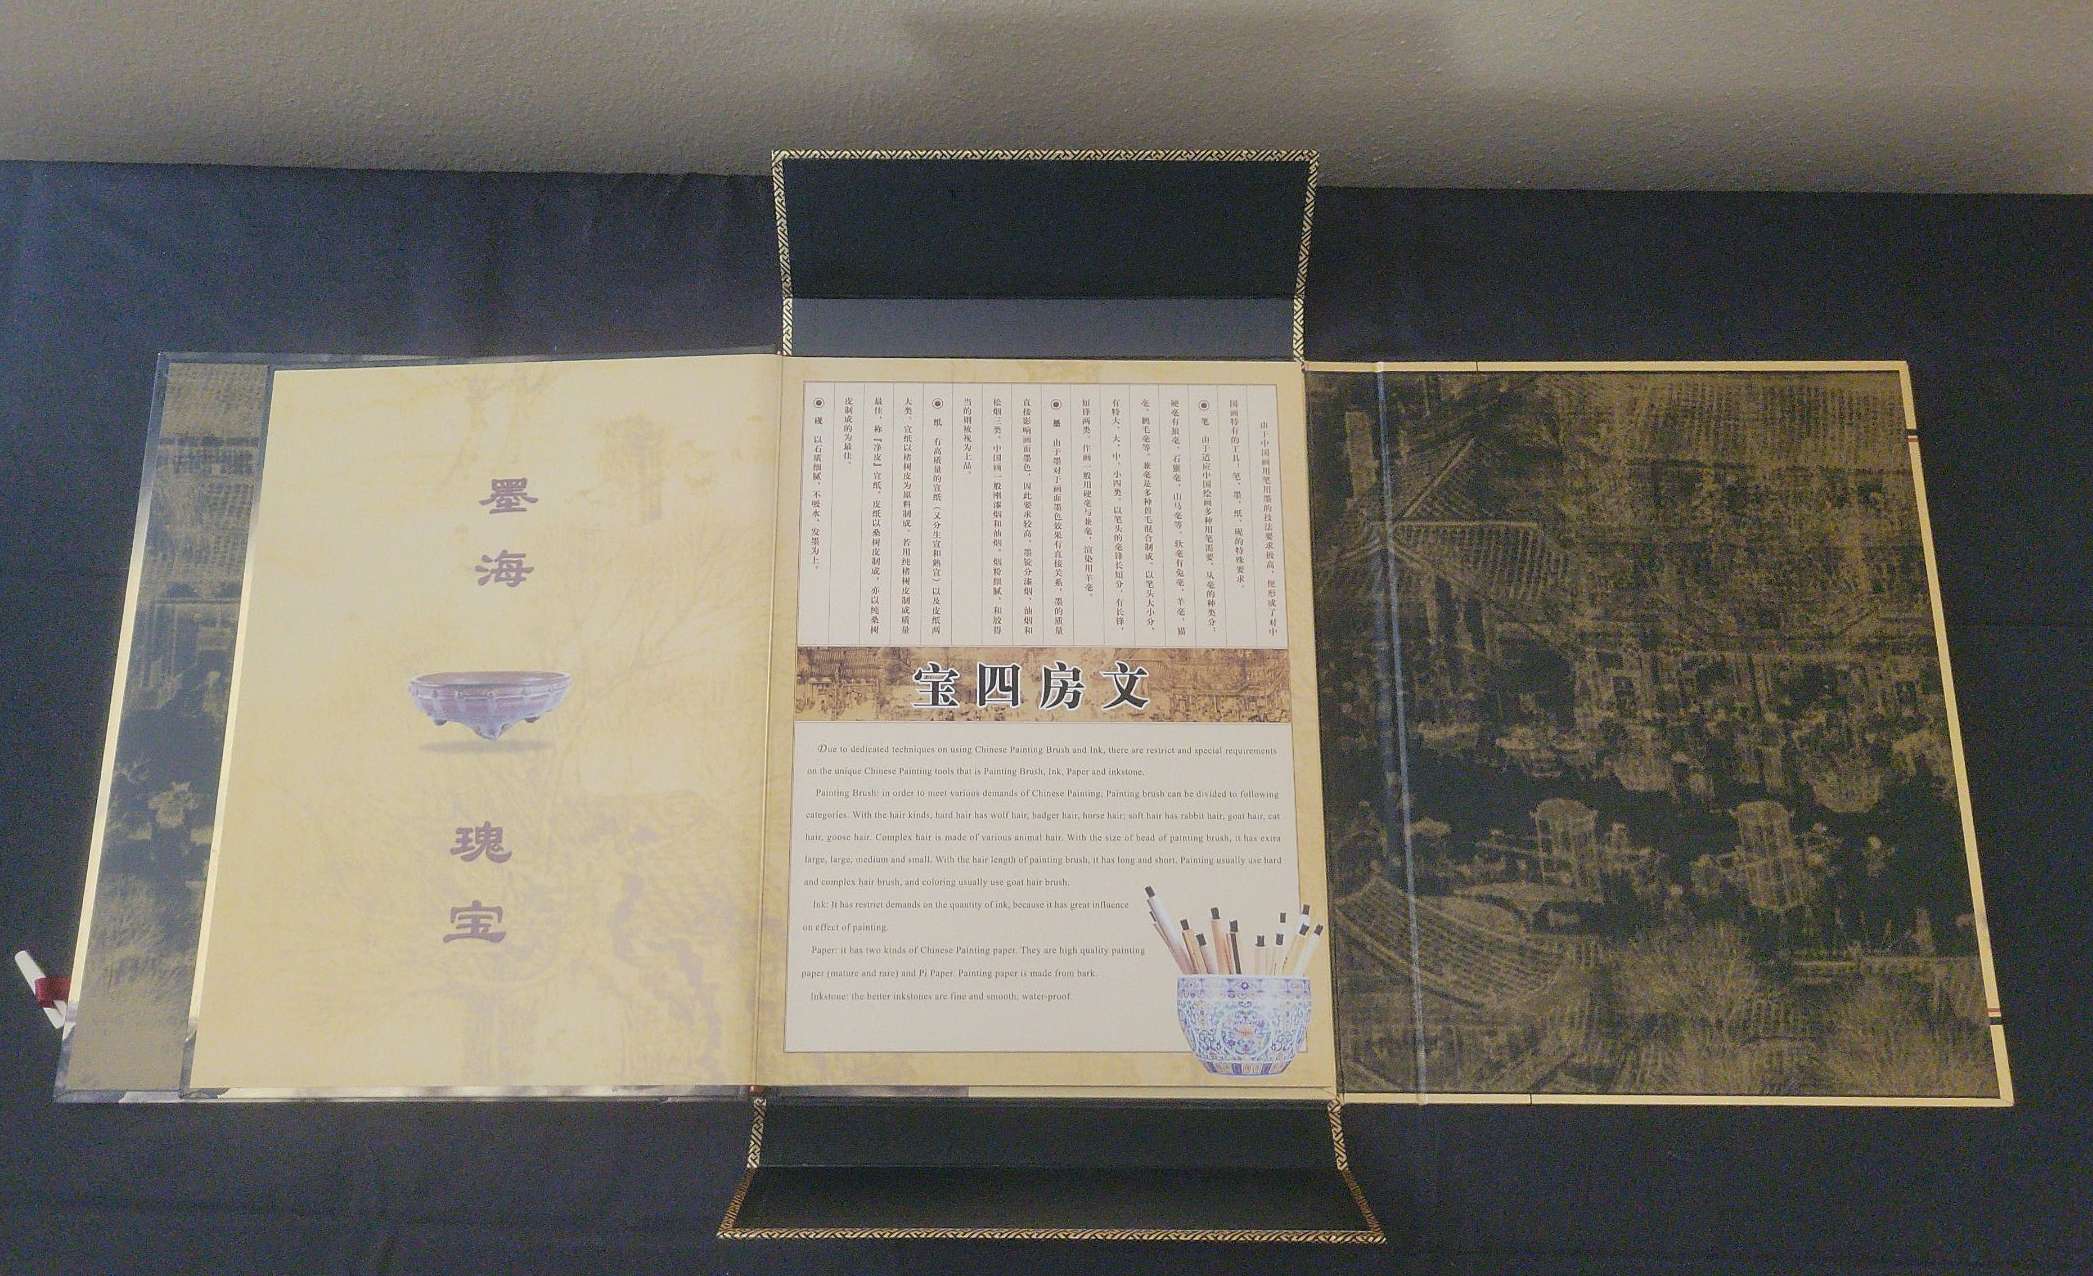 墨海
瑰宝
由于中国画用笔用墨的技法要求极高，便形成了对中
国画特有的工具：笔、墨、纸、砚的特殊要求。
笔 由于适应中国绘画多种用笔需要，从毫的种类分：
硬毫有狼毫、石獾毫、山马毫等。软毫有兔毫、羊毫、猫
毫、鹅毛毫等。兼毫是多种兽毛混合制成。以笔头大小分，
有特大、大、中、小四类。以笔头的毫锋长短分，有长锋，
短锋两类。作画一般用硬毫与兼毫，渲染用羊毫。
墨 由于墨对于画面墨色效果有直接关系，墨的质量
直接影响画面墨色，因此要求较高。墨锭分漆烟、油烟和
松烟三类。中国画一般用漆烟和油烟。烟粉细腻、和胶得
当的则被视为上品。
纸 有高质量的宣纸（又分生宣和熟宣）以及皮纸两
大类。宣纸以楮树皮为原料制成，若用纯楮树皮制成质量
最佳，称『净皮』宣纸。皮纸以桑树皮制成，亦以纯桑树
皮制成的为最佳。
砚 以石质细腻、不吸水、发墨为上。
宝四房文
Due to dedicated techniques on using Chinese Painting Brush and Ink, there are restrict and special requirements
on the unique Chinese Painting tools that is Painting Brush, Ink, Paper and inkstone.
Painting Brush: in order to meet various demands of Chinese Painting, Painting brush can be divided to following
categories. With the hair kinds, hard hair has wolf hair, badger hair, horse hair; soft hair has rabbit hair, goat hair, cat
hair, goose hair. Complex hair is made of various animal hair. With the size of head of painting brush, it has extra
large, large, medium and small. With the hair length of painting brush, it has long and short, Painting usually use hard
and complex hair brush, and coloring usually use goat hair brush.
Ink: It has restrict demands on the quantity of ink, because it has great influence
on effect of painting.
Paper: it has two kinds of Chinese Painting paper. They are high quality painting
paper (mature and rare) and Pi Paper. Painting paper is made from bark.
Inkstone: the better inkstones are fine and smooth, water-proof.